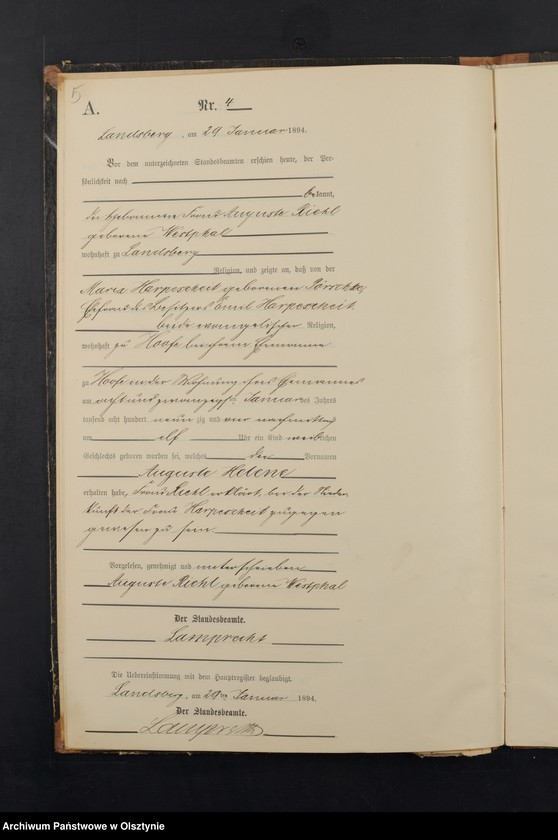 5
A.
Nr. 4
Landsberg, am 29 Januar 1894.
Vor dem unterzeichneten Standesbeamten erschien heute, der Per-
sönlichkeit nach
bekannt,
die Hebamme Frau Auguste Riehl
geborene Westphal
wohnhaft zu Landsberg
Religion, und zeigte an, daß von der
Maria Harposcheit geborenen
Ehefrau des Besitzers Emil Harposcheit
beide evangelischer Religion,
wohnhaft zu Hoofe bei ihrem Ehemanne
zu Hoofe in der Wohnung ihres Ehemannes
am achtundzwanzigsten Januar des Jahres
tausend acht hundert neunzig und vier nachmittags
um elf Uhr ein Kind weiblichen
Geschlechts geboren worden sei, welches die Vornamen
Auguste Helene
erhalten habe, Frau Riehl erklärt, bei der Nieder
kunft der Frau Harposcheit zugegen
gewesen zu sein.
Vorgelesen, genehmigt und unterschrieben
Auguste Riehl geborene Westphal
Der Standesbeamte.
Lamprecht
Die Uebereinstimmung mit dem Hauptregister beglaubigt.
Landsberg, am 29ten Januar 1894.
Der Standesbeamte.
Archiwum Państwowe w Olsztynie